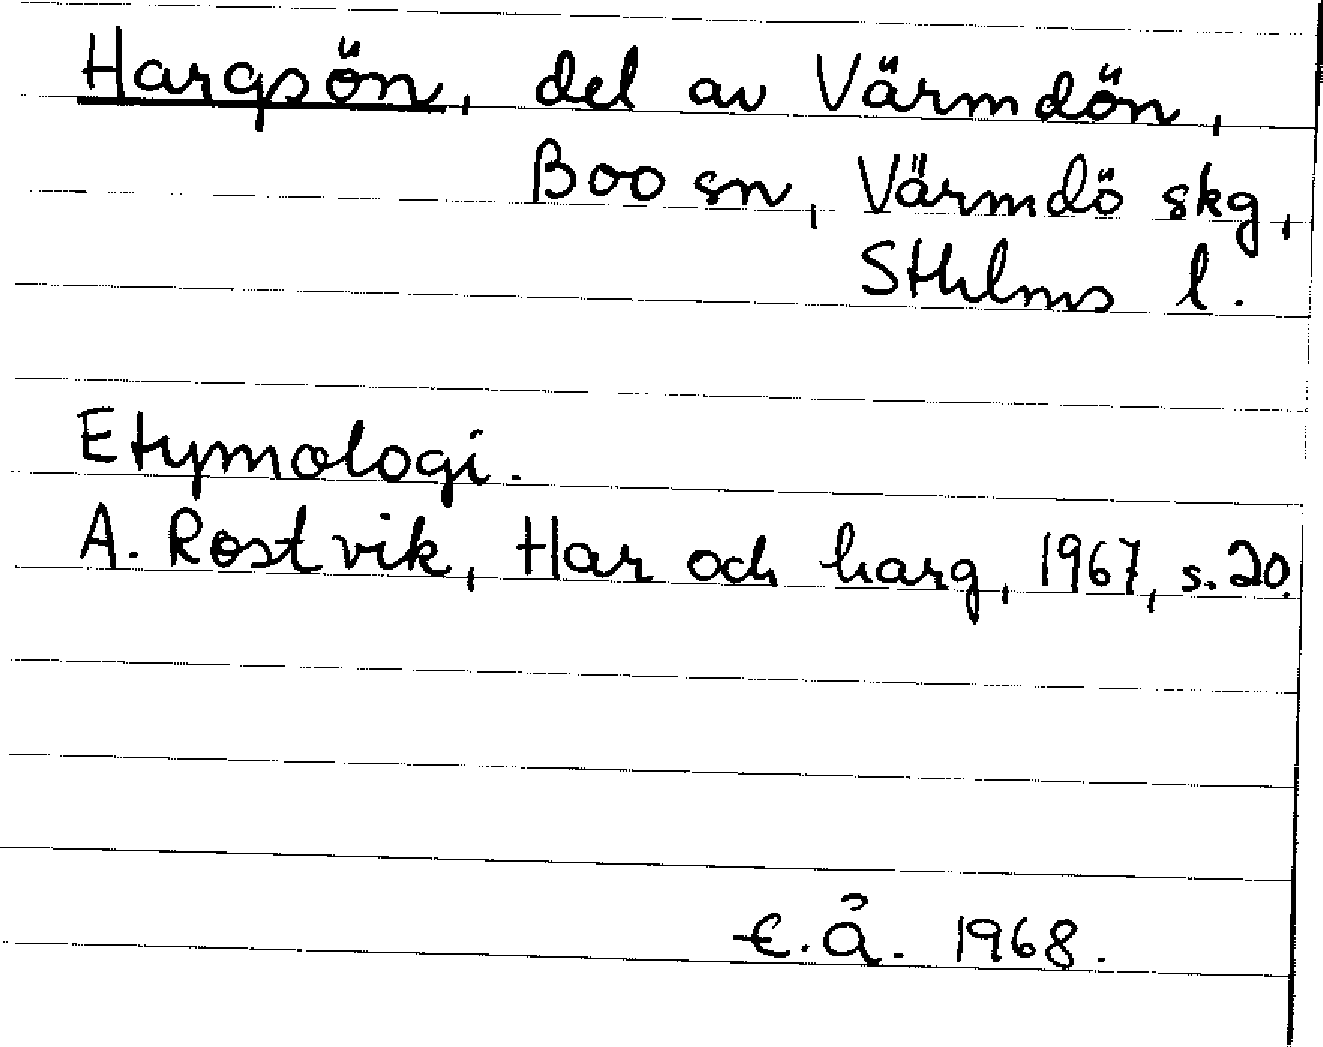 Hargsön, del av Värmdön,
Boo sn, Värmdö skg,
Sthlms l.
Etymologi.
A. Rostvik, Har och harg, 1967, s. 20.
E. Å. 1968.